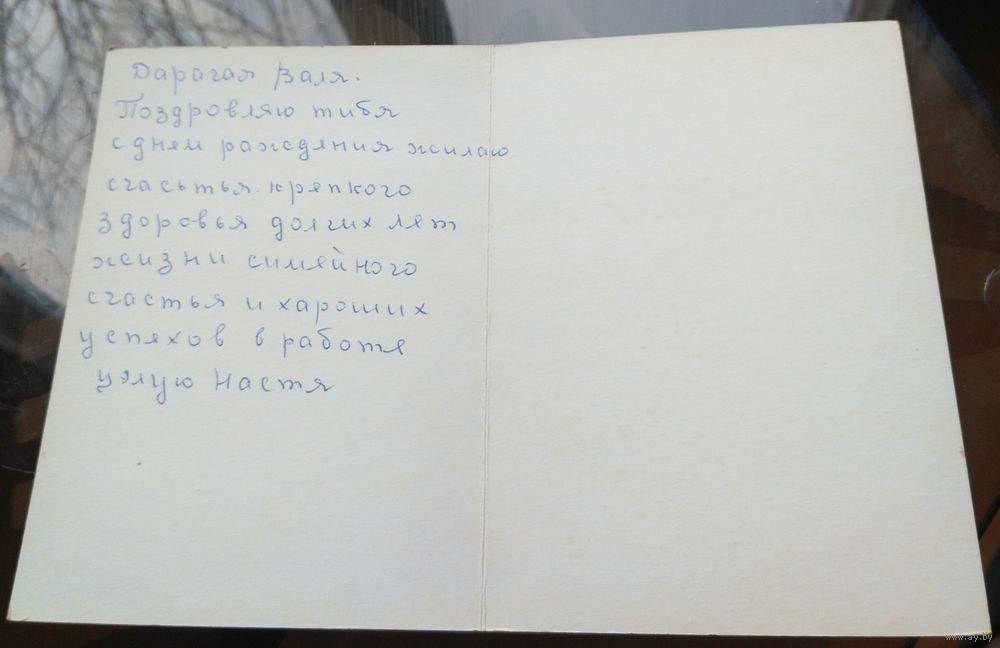 Дарагая Валя.
Поздровляю тибя
с днем раждения жилаю
счасьтья. крепкого
здоровья долгих лет
жизни симейного
счастья и хароших
успяхов в работе
цэлую Настя
www.ay.by